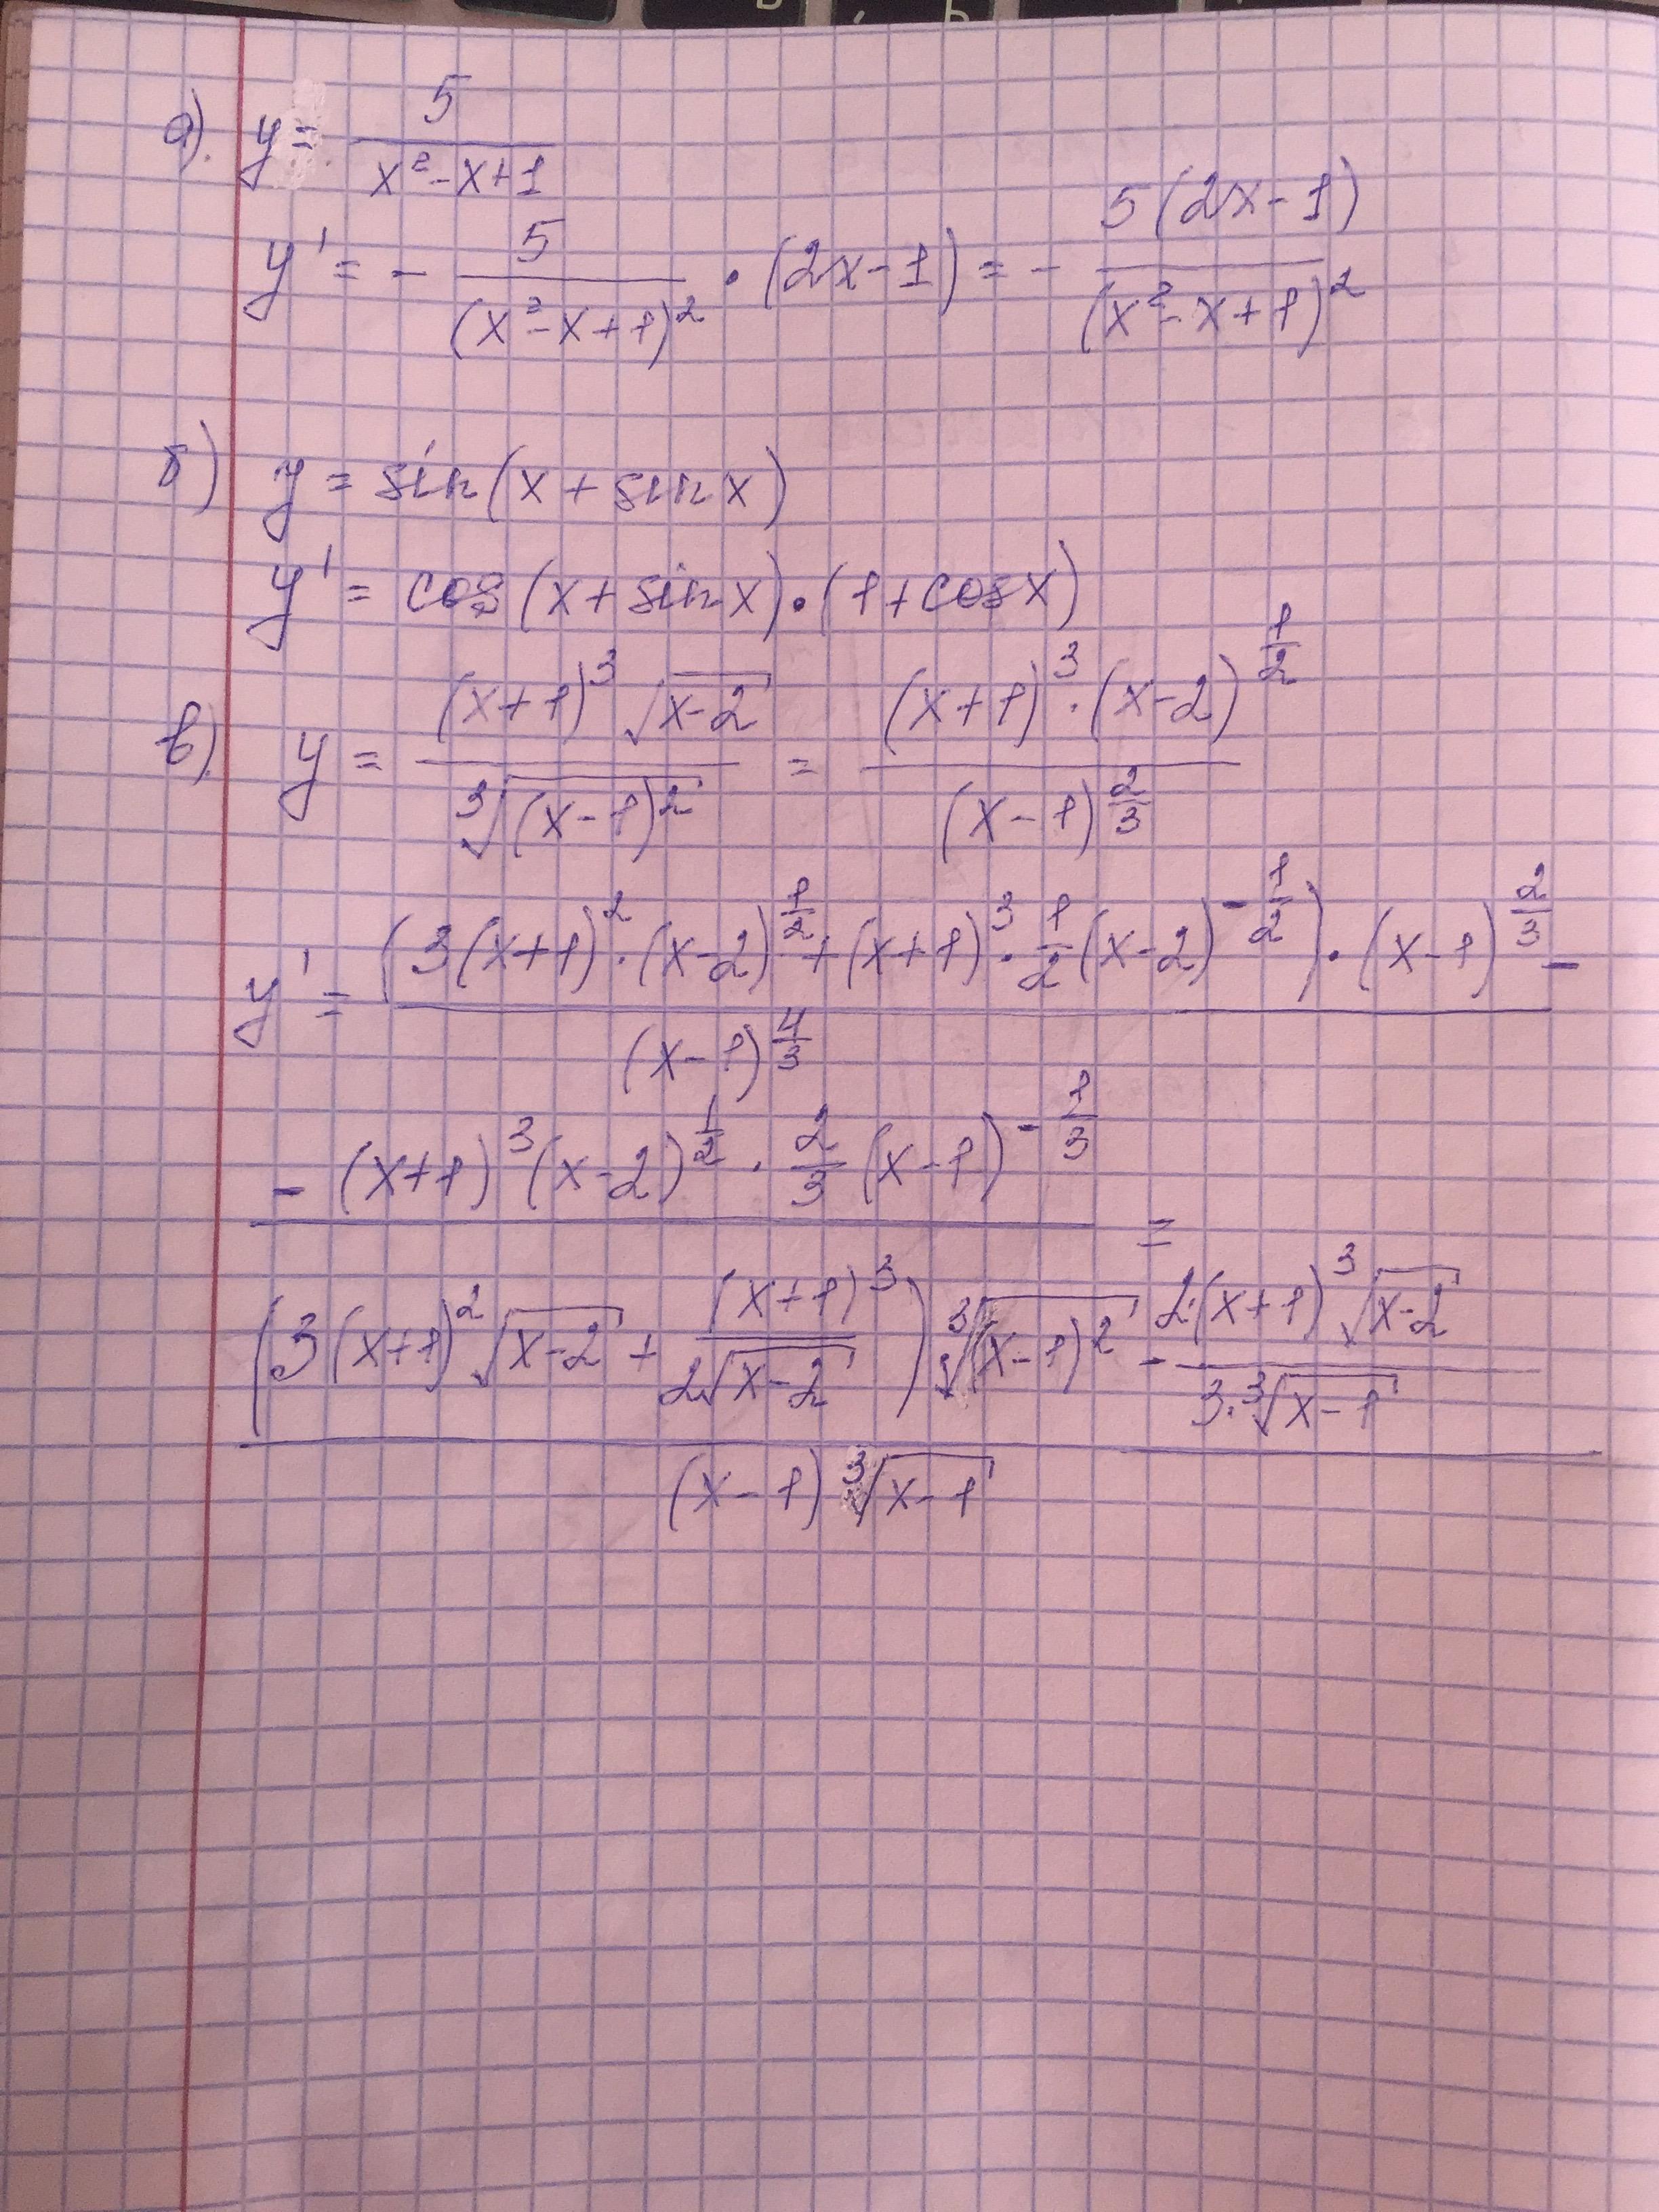 а). y = 5 / (x² - x + 1)
y' = - 5 / (x² - x + 1)² · (2x - 1) = - 5(2x - 1) / (x² - x + 1)²
б) y = sin(x + sin x)
y' = cos(x + sin x) · (1 + cos x)
в). y = (x+1)³ √(x-2) / ∛((x-1)²) = (x+1)³ · (x-2)^(1/2) / (x-1)^(2/3)
y' = (3(x+1)² · (x-2)^(1/2) + (x+1)³ · 1/2 (x-2)^(-1/2)) · (x-1)^(2/3) - / (x-1)^(4/3)
- (x+1)³ (x-2)^(1/2) · 2/3 (x-1)^(-1/3) =
(3(x+1)² √(x-2) + (x+1)³ / 2√(x-2)) ∛((x-1)²) - 2·(x+1)³ √(x-2) / 3·∛(x-1)
(x-1) ∛(x-1)